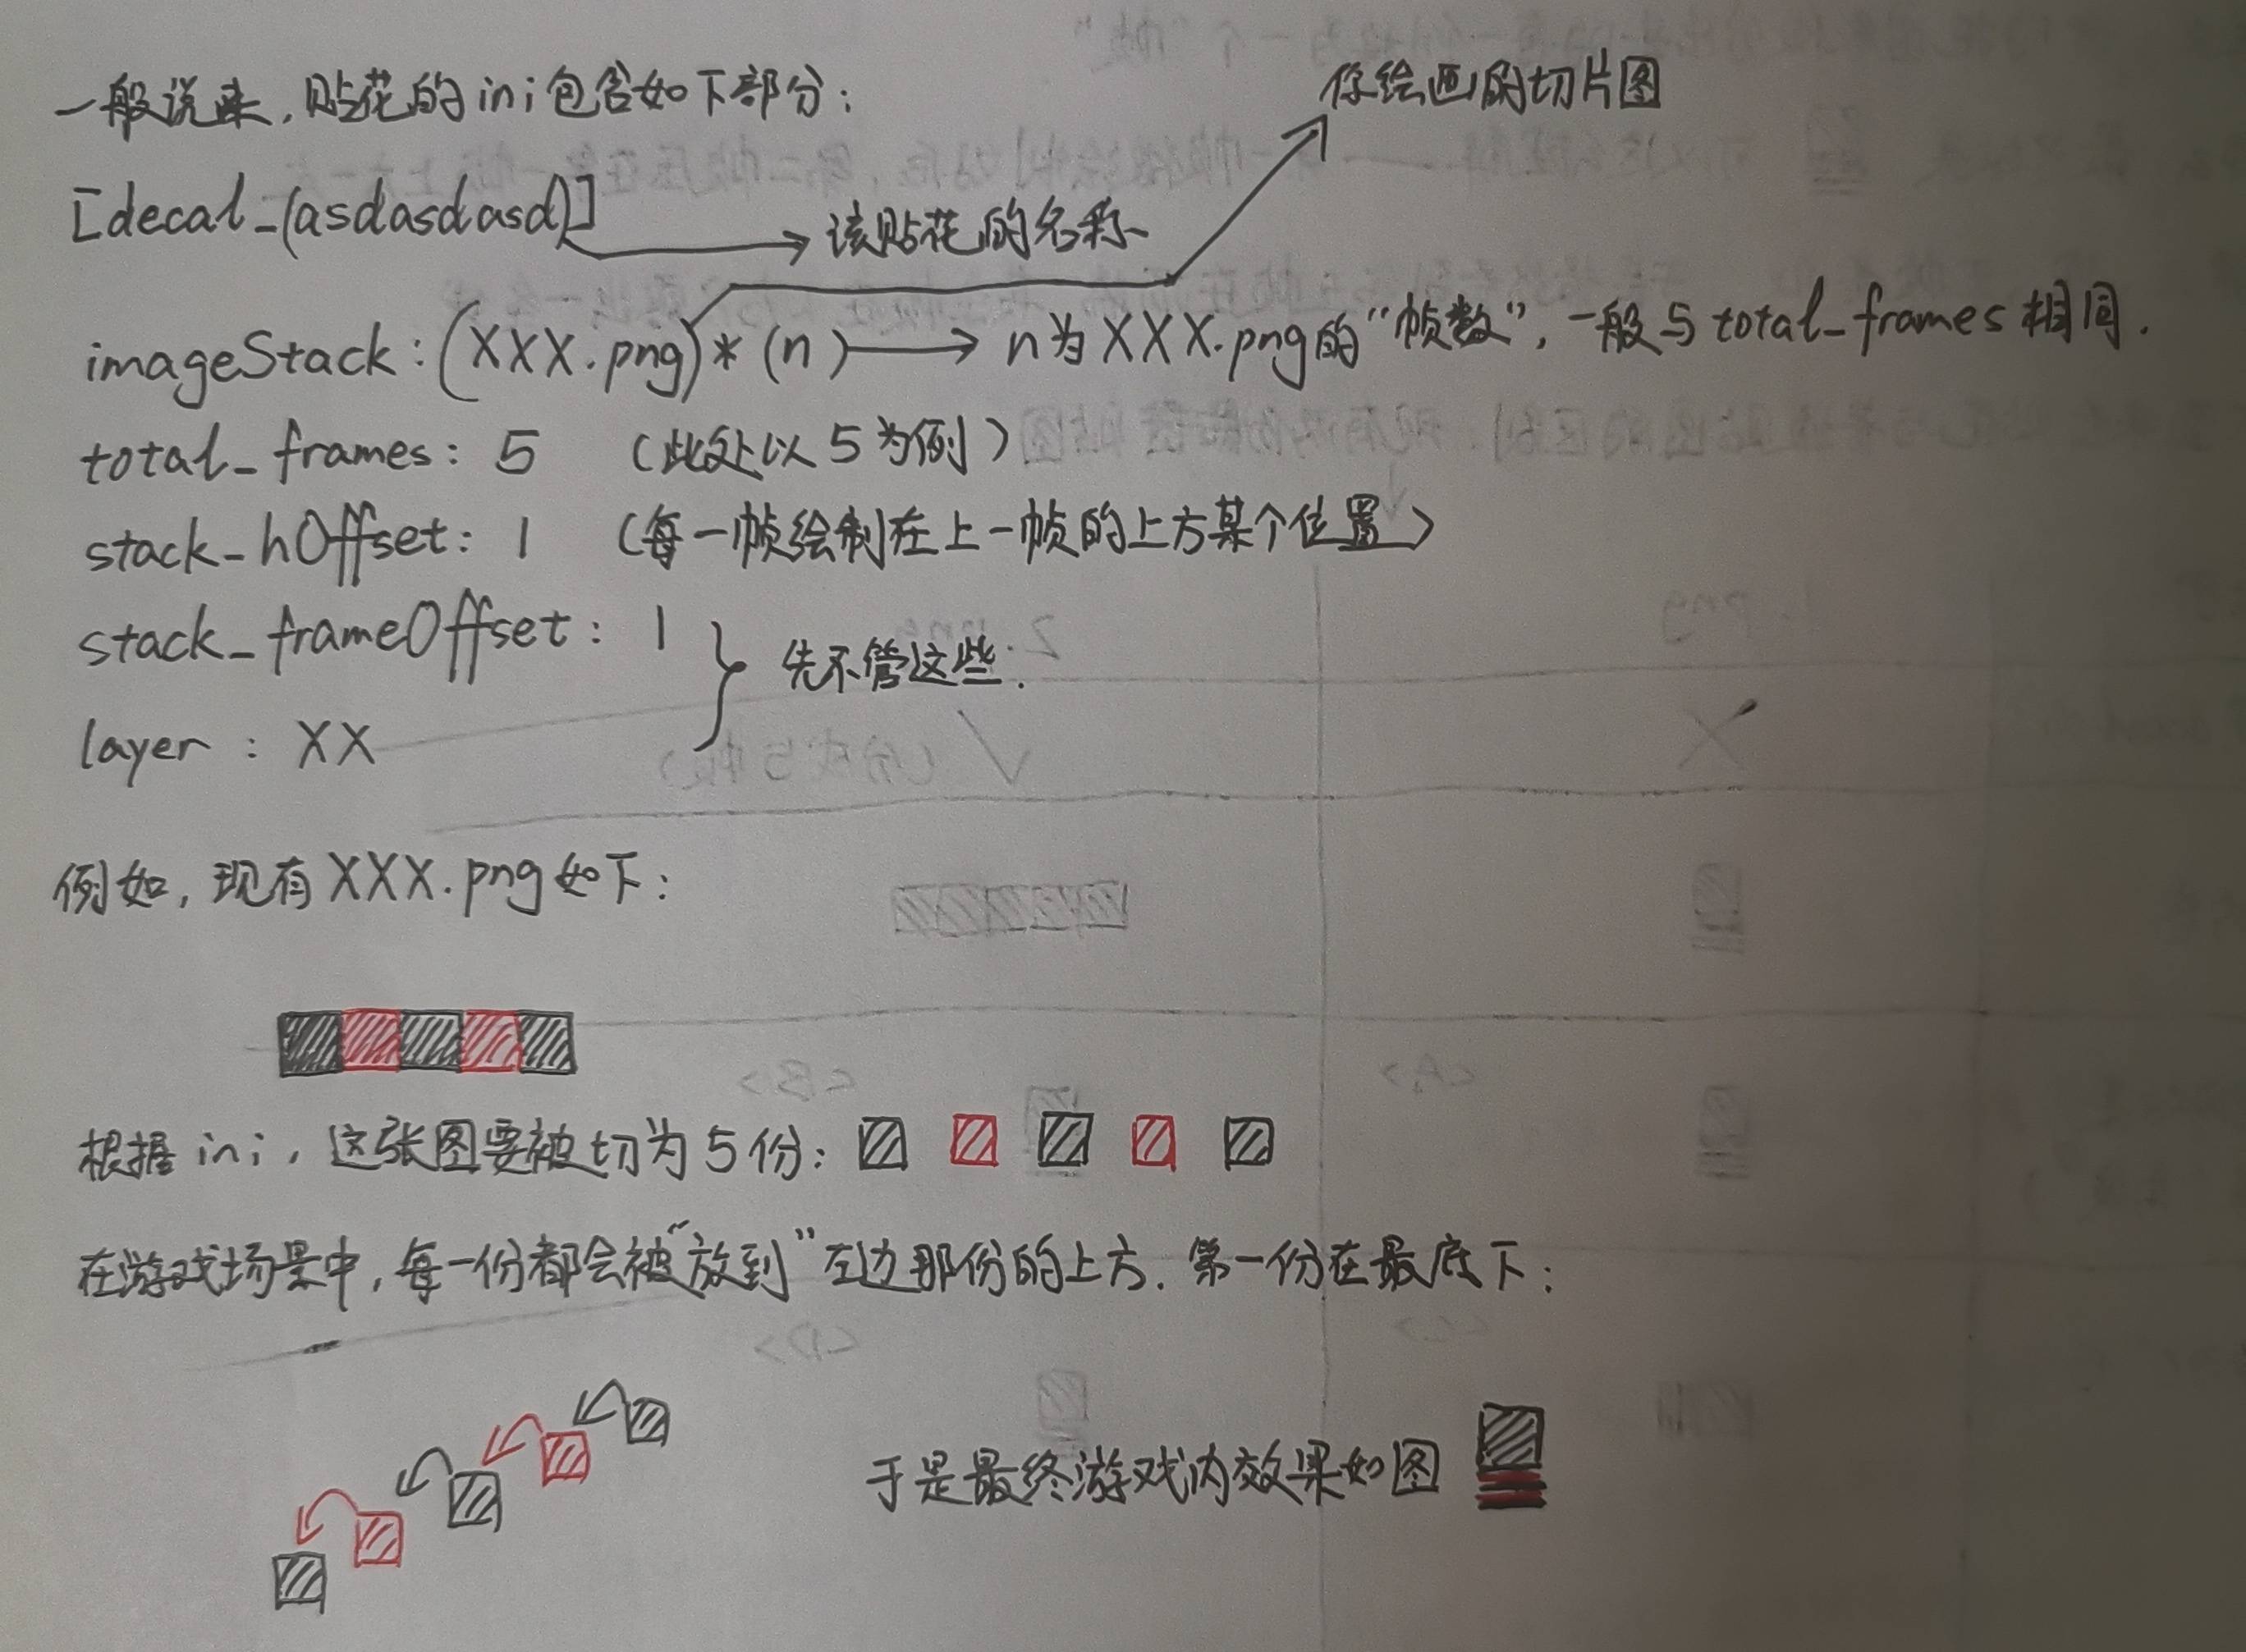 一般说来,贴花的ini包含如下部分:
你绘画的切片图
[decal_(asdasdasd)]
该贴花的名称
imageStack:(XXX.png)*(n) n为XXX.png的“帧数”,一般与total_frames相同.
total_frames: 5 (此处以5为例)
stack_hOffset: 1 (每一帧绘制在上一帧的上方某个位置)
stack_frameOffset: 1
先不管这些.
layer : XX
例如,现有XXX.png如下:
根据ini,这张图要被切为5份:
在游戏场景中,每一份都会被“放到”左边那份的上方.第一份在最底下:
于是最终游戏内效果如图